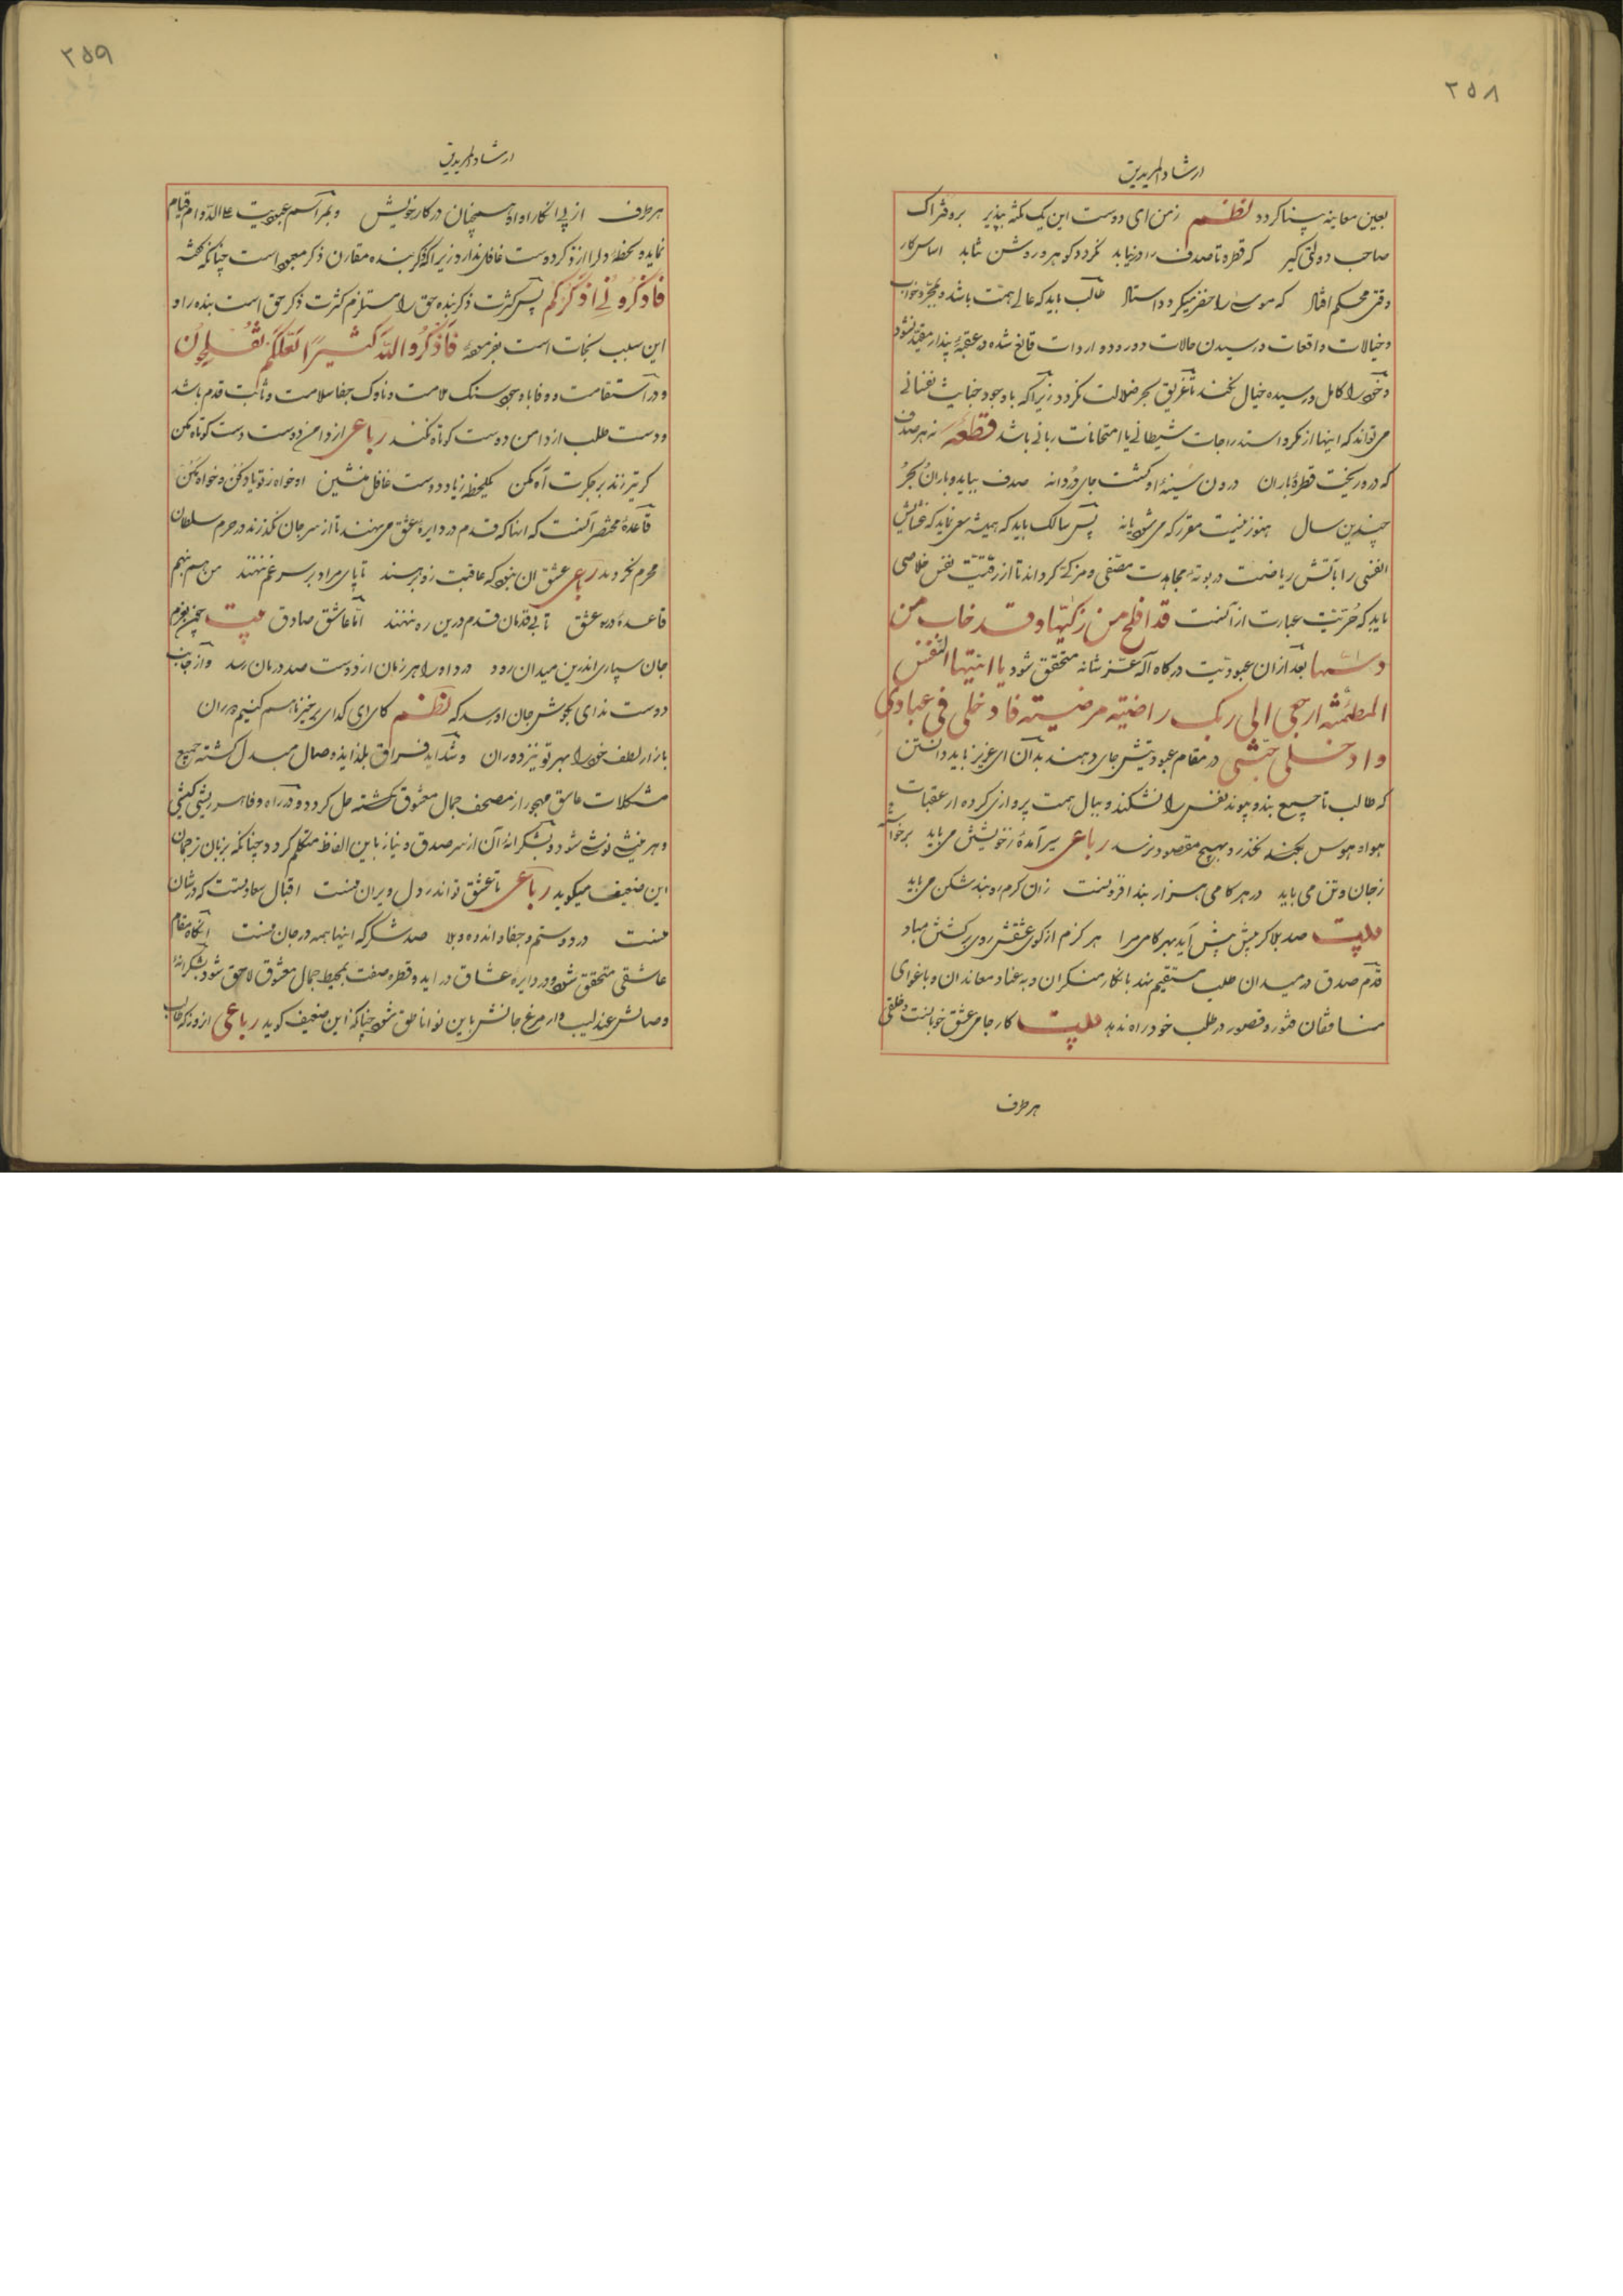 ۲۵۸
ارشاد المریدین
بعین معاینه بینا کردد نظم زمن ای دوست این یک نکته بپذیر برو فتراک
صاحب دولتی کیر که قطره تا صدف را در نیابد نکردد کوهر و روشن نتابد اساس کار
وقتی محکم افتاد که موسی را خضر میکردد استاد طالب باید که عالی همت باشد و بمجرد خواب
و خیالات و واقعات و رسیدن حالات و ورود واردات قانع نشده در عقبه پندار مقید نشود
و خود را کامل و رسیده خیال نکند تا غریق بحر ضلالت نکردد زیرا که با وجود خباثت نفسانی
می تواند که اینها از مکر و استدراجات شیطانی یا امتحانات ربانی باشد قطعه نه هر صدف
که درو ریخت قطره باران درون سینه او کشت جای دردانه صدف بباید و باران و بحر
چندین سال هنوز نیست مقرر که می شود یا نه پس سالک باید که همیشه سعی نماید که غشایش
انفسی را باتش ریاضت در بوته مجاهدت مصفی و مزکی کرداند تا از رقیت نفس خلاصی
یابد که حریت عبارت از آنست قد افلح من زکیها و قد خاب من
دسّیها بعد از آن عبودیت درکاه اله عز شانه متحقق شود یا ایتها النفس
المطمئنه ارجعی الی ربک راضیة مرضیة فادخلی فی عبادی
وادخلی جنتی در مقام عبودیتش جای دهند بدان ای عزیز باید دانستن
که طالب تا جمیع بند و پیوند نفس را نشکند و ببال همت پروازی کرده از عقبات
هوا و هوس بجمله نکذرد بهیچ مقصود نرسد رباعی سیر آمده ز خویشتن می باید برخواسته
ز جان و تن می باید در هر کامی هزار بند افزونست زان کرم رو بند شکن می باید
بیت صد بلا کر پیش پیش آید بهر کامی مرا هر کزم از کوی عشقش روی برکشتن مباد
قدم صدق در میدان طلب مستقیم نهد بانکار منکران و به عناد معاندان و باغوای
منافقان فتور و قصور در طلب خود راه ندهد بیت کار جامی عشق خوبانست و خلقی
هر طرف
۲۵۹
ارشاد المریدین
هر طرف از پی انکار او او همچنان در کار خویش و بمراسم عبودیت علی الدوام قیام
نماید و لحظه دل را از ذکر دوست غافل ندارد زیرا که ذکر بنده مقارن ذکر معبود است چنانکه کفته
فاذکرونی اذکرکم پس کثرت ذکر بنده حق را مستلزم کثرت ذکر حق است بنده را و
این سبب نجات است بفرموده فاذکروا الله کثیرا لعلکم تفلحون
و در استقامت و وفا با وجود سنک ملامت و ناوک جفا سلامت و ثابت قدم باشد
و دست طلب از دامن دوست کوتاه نکند رباعی از دامن دوست دست کوتاه مکن
کر تیر زند بر جکرت آه مکن یکلحظه ز یاد دوست غافل منشین او خواه ز تو یاد کن و خواه مکن
قاعده مختصر آنست که انها که قدم در دایره عشق می نهند تا از سر جان نکذرند در حرم سلطان
محرم نکردند رباعی عشق ان نبود که عاقبت زو برسند تا پای مراد بر سر غم ننهند من هم بنهم
قاعده در ره عشق تا بی قدمان قدم درین ره ننهند اما عاشق صادق بیت چون بعزم
جان سپاری اندرین میدان رود درد او را هر زمان از دوست صد درمان رسد و از جانب
دوست ندای بکوش جان او رسد که نظم کای کدای برخیز تا هم کنیم در ان
بازار لطف خود را بهر تو نیز دوران و شداید فراق بلذایذ وصال مبدل کشته جمیع
مشکلات عاشق مهجور از مصحف جمال معشوق کشته حل کردد و در راه وفا هر ریشی کیشی
و هر نیشی نوشی شود و بشکرانه آن از سر صدق و نیاز باین الفاظ متکلم کردد چنانکه بزبان ترجمان
این ضعیف میکوید رباعی تا عشق تو اندر دل ویران منست اقبال سعادتست که در شان
منست درد و ستم و جفا و اندوه و بلا صد شکر که اینها همه در جان منست انکاه مقام
عاشقی متحقق شود و در دایره عشاق در اید و قطره صفت بمحیط جمال معشوق لاحق شود بشکرانه
وصالش عندلیب وار مرغ جانش باین نوا ناطق شود چنانکه این ضعیف کوید رباعی از روز که طالب